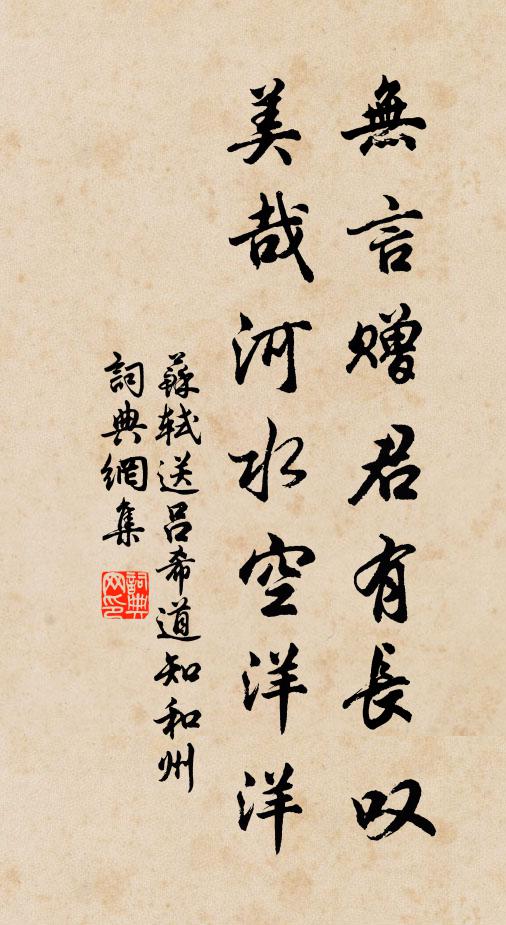 無言贈君有長叹
美哉河水空洋洋
蘇軾送呂希道知和州
詞典網集
詞典网印